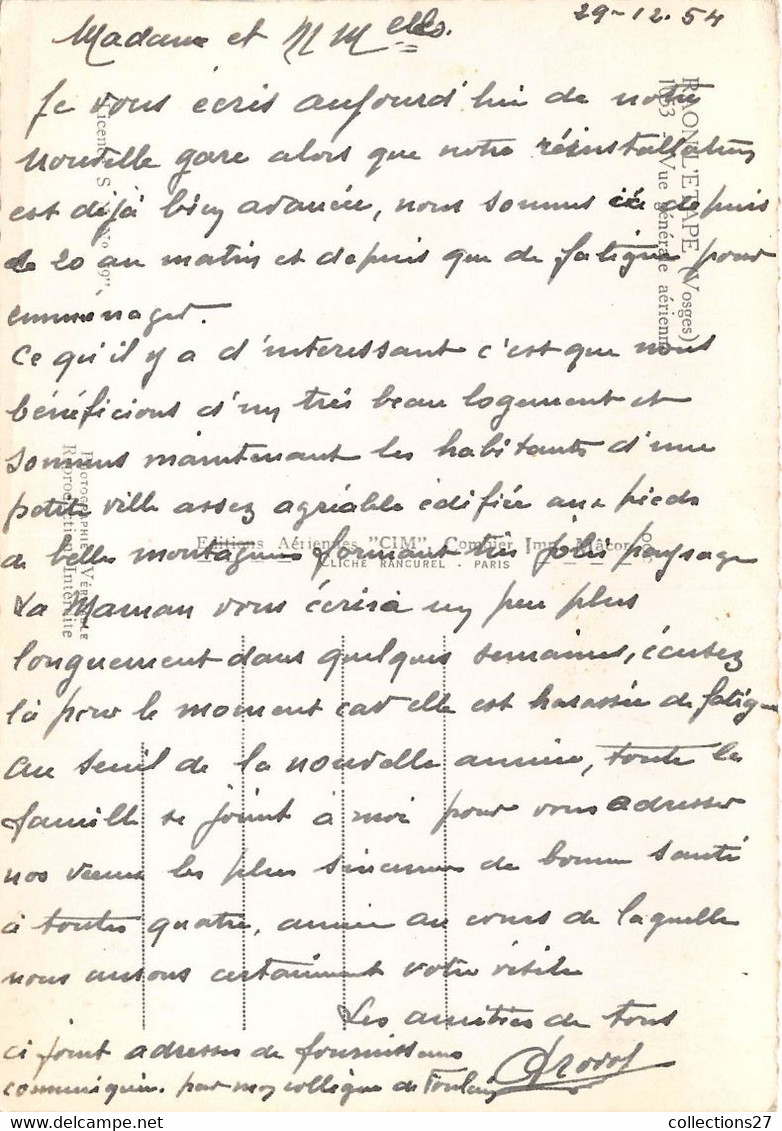 29-12-54
Madame et M Melles.
Je vous écris aujourd'hui de notre
nouvelle gare alors que notre réinstallation
est déjà bien avancée, nous sommes ici depuis
le 20 au matin et depuis que de fatigue pour
emménager.
Ce qu'il y a d'intéressant c'est que nous
bénéficions d'un très beau logement et
sommes maintenant les habitants d'une
petite ville assez agréable édifiée aux pieds
de belles montagnes formant très joli paysage
La Maman vous écrira un peu plus
longuement dans quelques semaines, écusez
là pour le moment car elle est harassée de fatigue
Au seuil de la nouvelle année, toute la
famille se joint à moi pour vous adresser
nos vœux les plus sincères de bonne santé
à toutes quatre, année au cours de laquelle
nous aurons certainement votre visite
Les amitiés de tous
ci joint adresses de fournisseurs
communiquées par mon collègue de
RAON-L'ETAPE (Vosges)
1053 - Vue générale aérienne
Licence S.
Editions Aériennes "CIM", Combier Imp. Mâcon
CLICHÉ RANCUREL - PARIS
PHOTOGRAPHIE VÉRITABLE
Reproduction Interdite
collections27